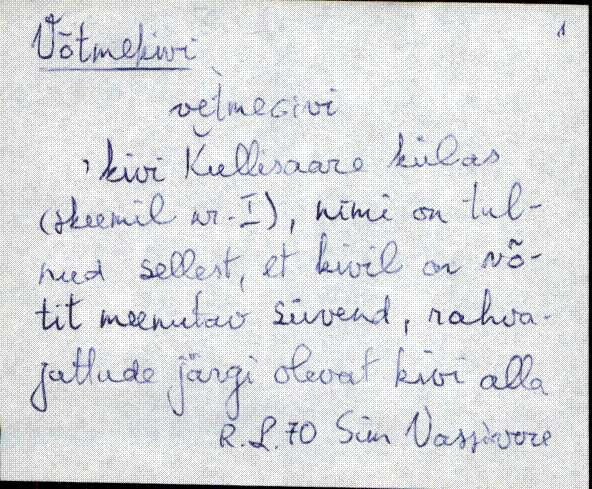 1
Võtmekivi
vetmeGivi
, kivi Kullisaare külas
(skeemil nr. I), nimi on tul-
nud sellest, et kivil on võ-
tit meenutav süvend, rahva-
juttude järgi olevat kivi alla
R. L. 70 Sim